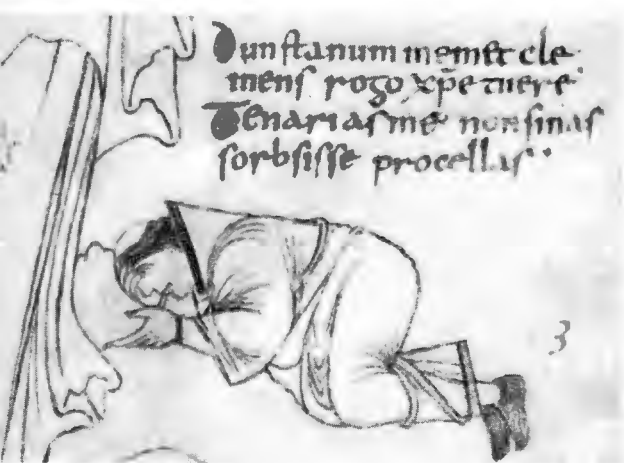 Dunstanum memet cle
mens rogo xp̄e tuere
Tenarias me non sinas
sorbsisse procellas
3